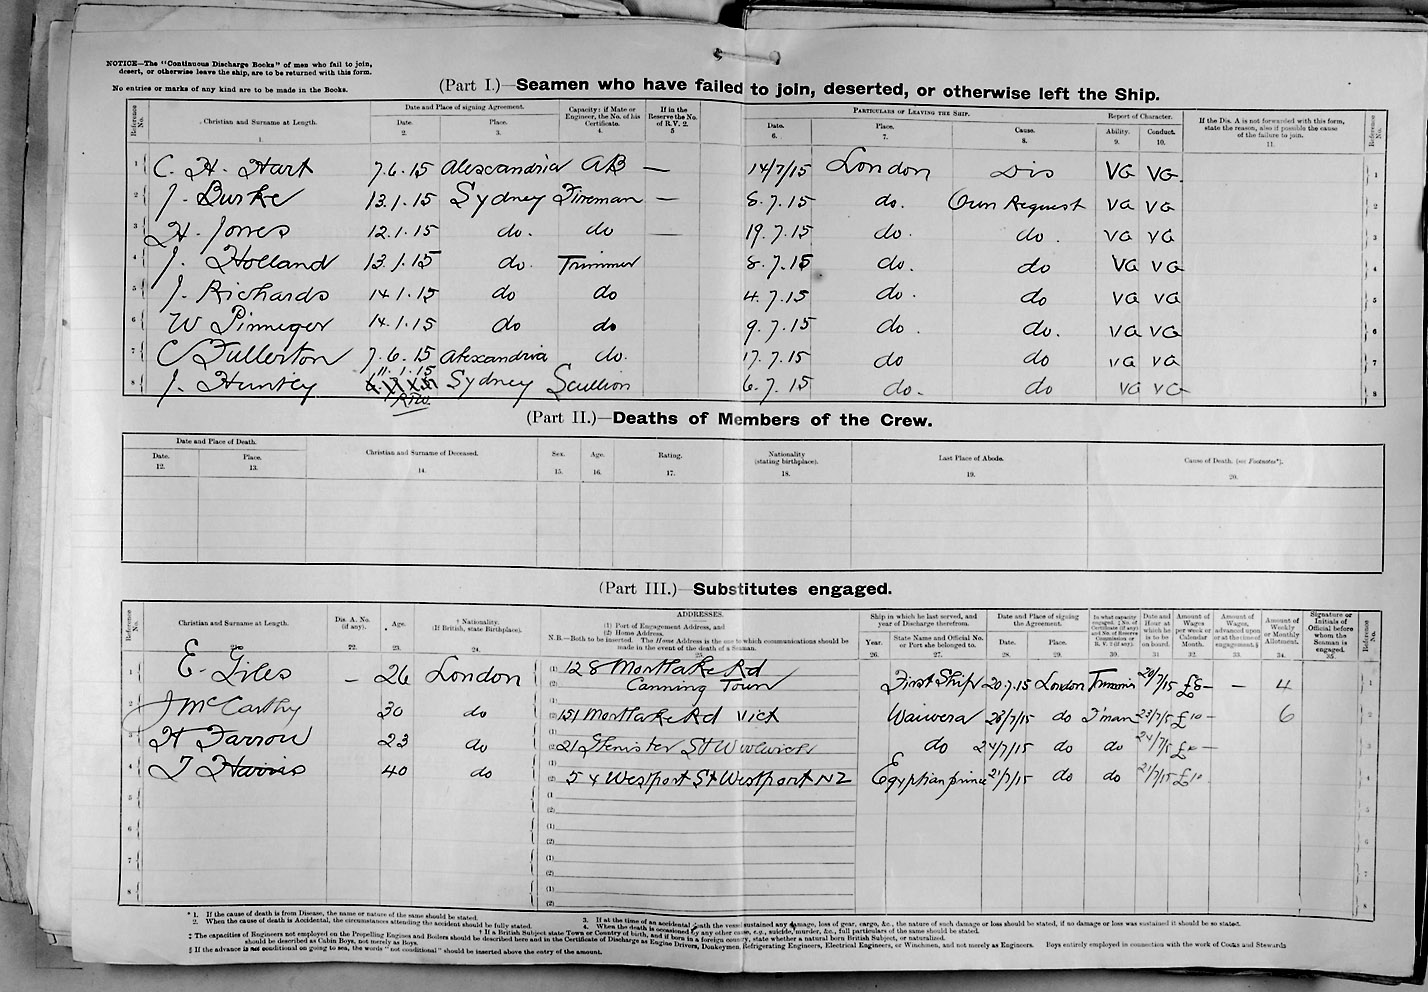 NOTICE—The "Continuous Discharge Books" of men who fail to join,
desert, or otherwise leave the ship, are to be returned with this form.
No entries or marks of any kind are to be made in the Books.
(Part I.)—Seamen who have failed to join, deserted, or otherwise left the Ship.
Reference No.
Christian and Surname at Length.
1.
Date and Place of signing Agreement.
Date.
2.
Place.
3.
Capacity: if Mate or
Engineer, the No. of his
Certificate.
4.
If in the
Reserve the No.
of R.V. 2.
5
Particulars of Leaving the Ship.
Date.
6.
Place.
7.
Cause.
8.
Report of Character.
Ability.
9.
Conduct.
10.
If the Dis. A is not forwarded with this form,
state the reason, also if possible the cause
of the failure to join.
11.
Reference No.
1 C. H. Hart 7.6.15 Alexandria AB — 14/7/15 London Dis VG VG. 1
2 J. Burke 13.1.15 Sydney Fireman — 8.7.15 do. Own Request VG VG 2
3 H. Jones 12.1.15 do. do — 19.7.15 do. do. VG VG 3
4 J. Holland 13.1.15 do. Trimmer 8.7.15 do. do VG VG 4
5 J. Richards 14.1.15 do do 4.7.15 do. do VG VG 5
6 W Pinneger 14.1.15 do do 9.7.15 do. do. VG VG 6
7 C Fullerton 7.6.15 Alexandria do. 17.7.15 do do VG VG 7
8 J. Huntly 11.1.15 Sydney Scullion 6.7.15 do. do VG VG 8
(Part II.)—Deaths of Members of the Crew.
Date and Place of Death.
Date.
12.
Place.
13.
Christian and Surname of Deceased.
14.
Sex.
15.
Age.
16.
Rating.
17.
Nationality
(stating birthplace).
18.
Last Place of Abode.
19.
Cause of Death. (see Footnotes*).
20.
(Part III.)—Substitutes engaged.
Reference No.
Christian and Surname at Length.
21.
Dis. A. No.
(if any).
22.
Age.
23.
† Nationality.
(If British, state Birthplace).
24.
ADDRESSES.
(1) Port of Engagement Address, and
(2) Home Address.
N.B.—Both to be inserted. The Home Address is the one to which communications should be
made in the event of the death of a Seaman.
25.
Ship in which he last served, and
year of Discharge therefrom.
Year.
26.
State Name and Official No.
or Port she belonged to.
27.
Date and Place of signing
the Agreement.
Date.
28.
Place.
29.
In what capacity
engaged. ‡ No. of
Certificate (if any)
and No. of Reserve
Commission or
R. V. 2 (if any).
30.
Date and
Hour at
which he
is to be
on board.
31
Amount of
Wages
per week or
Calendar
Month.
32.
Amount of
Wages,
advanced upon
or at the time of
engagement.§
33.
Amount of
Weekly
or Monthly
Allotment.
34.
Signature or
Initials of
Official before
whom the
Seaman is
engaged.
35.
Reference No.
1 E. Giles — 26 London (1) 128 Mortlake Rd
(2) Canning Town First Ship 20.7.15 London Trimmer 20/7/15 £8 — — 4 1
2 J McCarthy 30 do (2) 151 Mortlake Rd Vict Waiwera 23/7/15 do F'man 23/7/15 £10 — 6 2
3 H Farrow 23 do (2) 21 St Woolwich do 24/7/15 do do 24/7/15 £10 — 3
4 T Harris 40 do (2) 54 Westport St Westport NZ Egyptian prince 21/7/15 do do 21/7/15 £10 4
5 (1) 5
(2)
6 (1) 6
(2)
7 (1) 7
(2)
8 (1) 8
(2)
* 1. If the cause of death is from Disease, the name or nature of the same should be stated.
2. When the cause of death is Accidental, the circumstances attending the accident should be fully stated.
3. If at the time of an accidental death the vessel sustained any damage, loss of gear, cargo, &c., the nature of such damage or loss should be stated, if no damage or loss was sustained it should be so stated.
4. When the death is occasioned by any other cause, e.g., suicide, murder, &c., full particulars of the same should be stated.
† If a British Subject state Town or Country of birth, and if born in a foreign country, state whether a natural born British Subject, or naturalized.
‡ The capacities of Engineers not employed on the Propelling Engines and Boilers should be described here and in the Certificate of Discharge as Engine Drivers, Donkeymen, Refrigerating Engineers, Electrical Engineers, or Winchmen, and not merely as Engineers. Boys entirely employed in connection with the work of Cooks and Stewards
should be described as Cabin Boys, not merely as Boys.
§ If the advance is not conditional on going to sea, the words "not conditional" should be inserted above the entry of the amount.